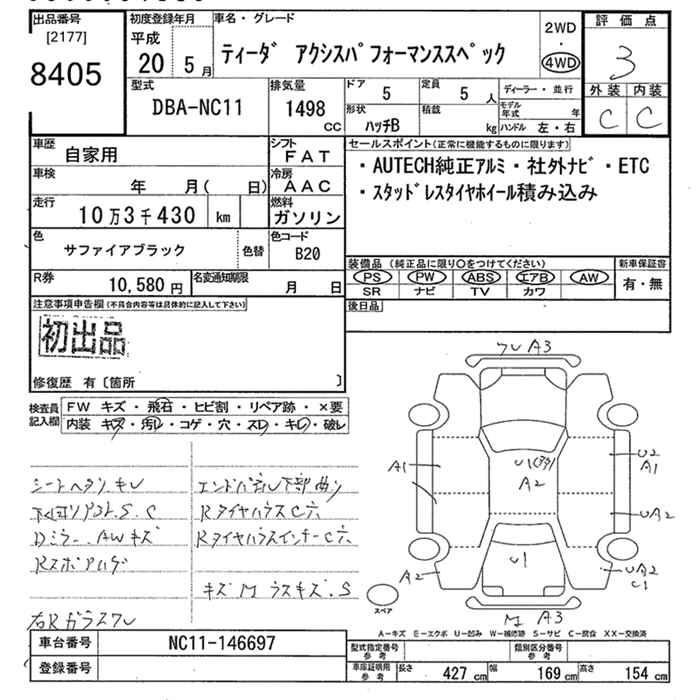 出品番号
[2177]
8405
初度登録年月
平成
20 5 月
車名・グレード
ティーダ アクシスパフォーマンススペック
2WD
・
4WD
評価点
3
外装 内装
C C
型式
DBA-NC11
排気量
1498
CC
ドア
5
定員
5 人
形状
ハッチB
積載
kg
ディーラー・並行
モデル年式 年
ハンドル 左・右
車歴
自家用
シフト
FAT
車検
年 月( 日)
冷房
AAC
走行
10万3千430 km
燃料
ガソリン
色
サファイアブラック
色替
色コード
B20
R券
10,580円
名変通知期限
月 日
セールスポイント(正常に機能するものに限ります)
・AUTECH純正アルミ・社外ナビ・ETC
・スタッドレスタイヤホイール積み込み
装備品(純正品に限り○をつけてください)
PS PW ABS エアB AW
SR ナビ TV カワ
新車保証書
有・無
後日品
注意事項申告欄(不具合内容等は具体的に記入して下さい)
初出品
修復歴 有〔箇所 〕
検査員記入欄
FW キズ・飛石・ヒビ割・リペア跡・×要
内装 キズ・汚レ・コゲ・穴・スレ・キレ・破レ
シートヘタリ、キレ
下回リサビ、S.C
Dミラー、AWキズ
Rスポハゲ
右Rガラスワレ
エンドパネル下部曲り
RタイヤハウスC穴
RタイヤハウスインナーC穴
キズM ラスキズ.S
ワレ A3
A1
U1
A2
U2
A1
UA2
U1
A2
UA2
C1
M A3
スペア
A-キズ E-エクボ U-凹み W-補修跡 S-サビ C-腐食 XX-交換済
車台番号
NC11-146697
登録番号
型式指定番号
参考
類別区分番号
参考
車庫証明用
参考
長さ 427 cm 幅 169 cm 高さ 154 cm